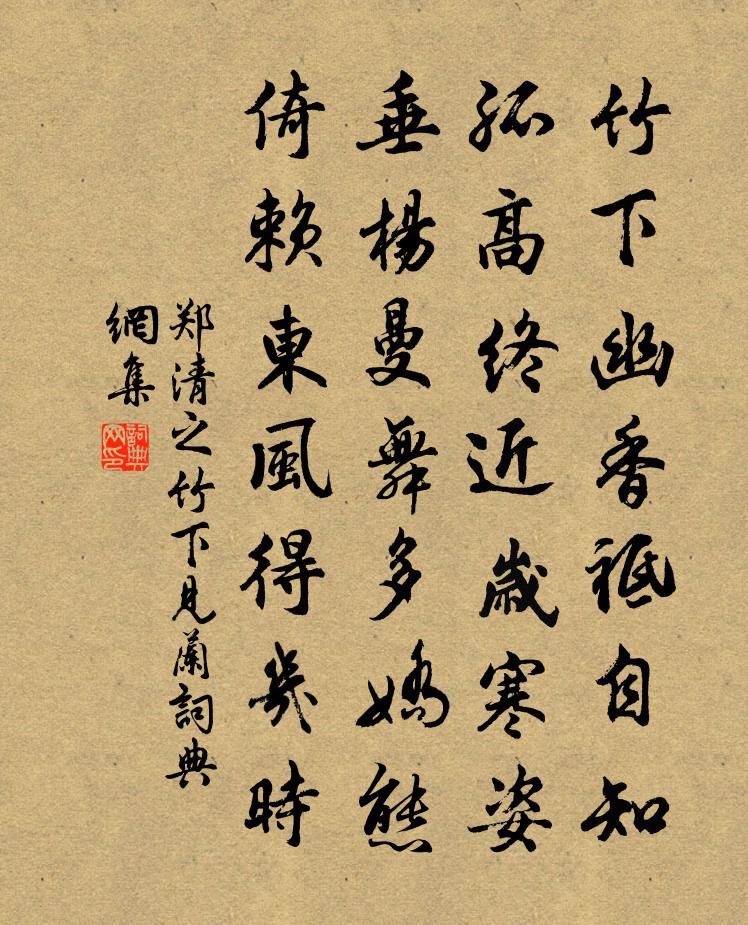 竹下幽香祗自知
孤高終近歲寒姿
垂楊曼舞多嬌態
倚賴東風得幾時
郑清之竹下見蘭詞典
網集
詞典
网印